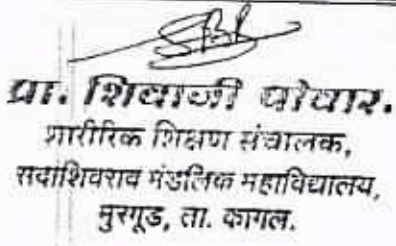 प्रा. शिवाजी पोवार.
शारीरिक शिक्षण संचालक,
सदाशिवराव मंडलिक महाविद्यालय,
मुरगूड, ता. कागल.